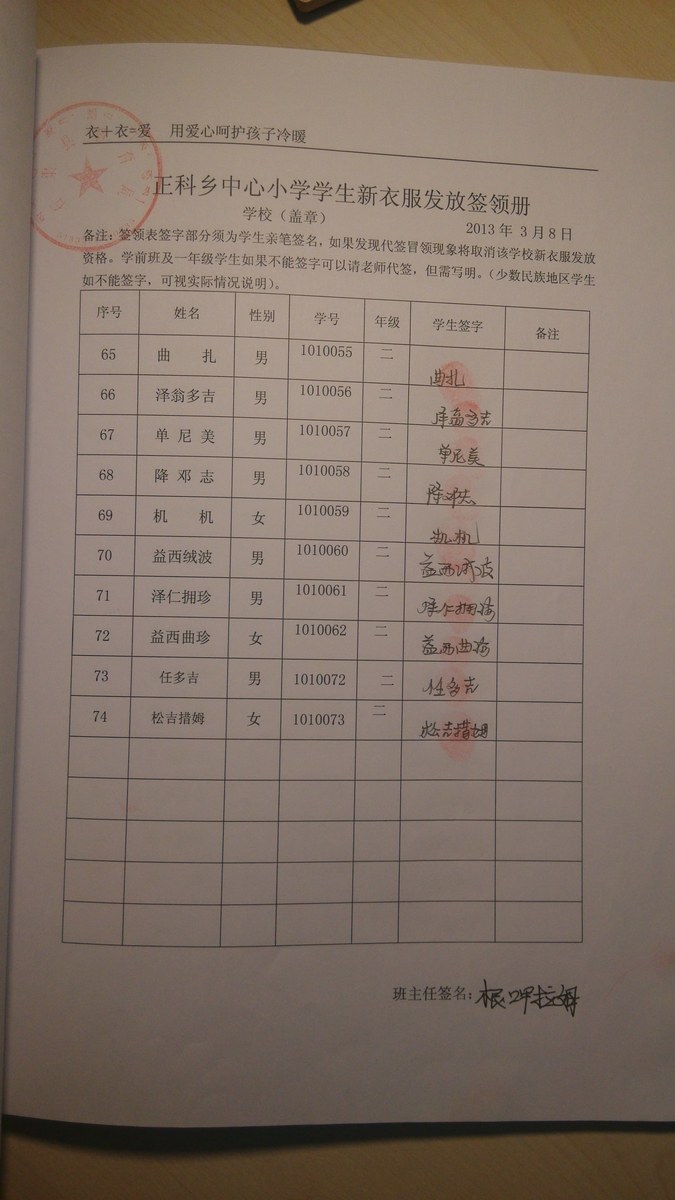 衣＋衣=爱 用爱心呵护孩子冷暖
正科乡中心小学学生新衣服发放签领册
学校（盖章） 2013 年 3 月 8 日
备注：签领表签字部分须为学生亲笔签名，如果发现代签冒领现象将取消该学校新衣服发放
资格。学前班及一年级学生如果不能签字可以请老师代签，但需写明。（少数民族地区学生
如不能签字，可视实际情况说明）。
序号 姓名 性别 学号 年级 学生签字 备注
65 曲 扎 男 1010055 二 曲扎
66 泽翁多吉 男 1010056 二 泽翁多吉
67 单 尼 美 男 1010057 二 单尼美
68 降 邓 志 男 1010058 二 降邓志
69 机 机 女 1010059 二 机机
70 益西绒波 男 1010060 二 益西绒波
71 泽仁拥珍 男 1010061 二 泽仁拥珍
72 益西曲珍 女 1010062 二 益西曲珍
73 任多吉 男 1010072 二 任多吉
74 松吉措姆 女 1010073 二 松吉措姆
班主任签名：根呷拉姆